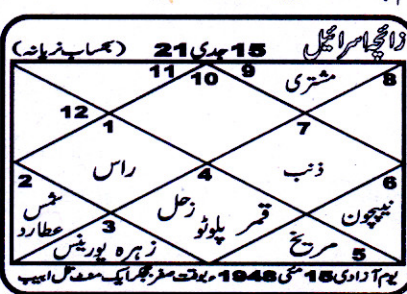 زائچہ اسرائیل
15 جدی 21 (بحساب نریانہ)
11 10 9
مشتری 8
12 1 7
راس 4 ذنب
2 شمس عطارد
3 زہرہ یورینس
زحل پلوٹو قمر
6 نیپچون
مریخ 5
یوم آزادی 15 مئی 1948ء بوقت صفر بجکر ایک منٹ تل ابیب